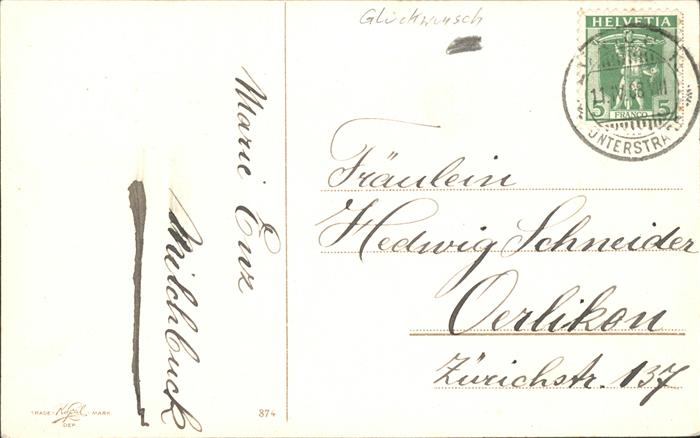 Glückwunsch
HELVETIA
5 FRANCO 5
Marie Enz
Milchbuck
Fräulein
Hedwig Schneider
Oerlikon
Zürichstr. 137
TRADE MARK
DEP.
874